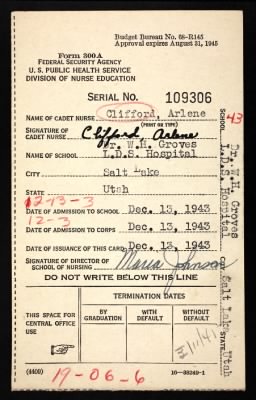 Budget Bureau No. 68-R145
Approval expires August 31, 1945
Form 300A
FEDERAL SECURITY AGENCY
U. S. PUBLIC HEALTH SERVICE
DIVISION OF NURSE EDUCATION
SERIAL NO. 109306
NAME OF CADET NURSE Clifford, Arlene
(PRINT OR TYPE)
SIGNATURE OF CADET NURSE Clifford, Arlene
Dr. W.H. Groves
NAME OF SCHOOL L.D.S. Hospital
CITY Salt Lake
STATE Utah
12-13-3
DATE OF ADMISSION TO SCHOOL Dec. 13, 1943
12-3
DATE OF ADMISSION TO CORPS Dec. 13, 1943
DATE OF ISSUANCE OF THIS CARD Dec. 13, 1943
SIGNATURE OF DIRECTOR OF SCHOOL OF NURSING Maria Johnson
DO NOT WRITE BELOW THIS LINE
TERMINATION DATES
THIS SPACE FOR CENTRAL OFFICE USE
BY GRADUATION
WITH DEFAULT
WITHOUT DEFAULT
(4409)
16-38249-1
19-06-6
43
SCHOOL
Dr. W.H. Groves
L.D.S. Hospital
Salt Lake, Utah
STATE